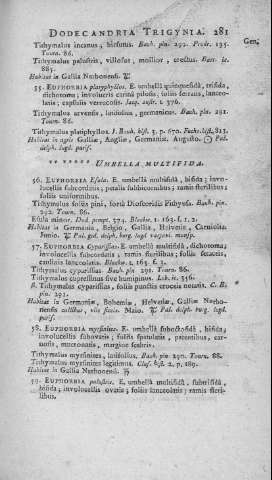 DODECANDRIA TRIGYNIA. 281
Tithymalus incanus, hirsutus. Bauh. pin. 292. Prodr. 135.
Tourn. 86.
Tithymalus palustris, villosus, mollior, erectus. Barr. ic.
885.
Habitat in Gallia Narbonensi.
55. EUPHORBIA platyphyllos. E. umbellâ quinquefidâ, trifida,
dichotoma; involucellis carinâ pilosis, foliis serratis, lanceo-
latis; capsulis verrucosis. Jacq. austr. t. 376.
Tithymalus arvensis, latifolius, germanicus. Bauh. pin. 291.
Tourn. 86.
Tithymalus platiphyllos. J. Bauh. hist. 3. p. 670. Fuchs. hist. 813.
Habitat in agris Galliæ, Angliæ, Germaniæ. Augusto. Pal.
delph. lugd. paris.
UMBELLA MULTIFIDA.
56. EUPHORBIA Esula. E. umbellâ multifidâ, bifida; invo-
lucellis subcordatis; petalis subbicornibus; ramis sterilibus;
foliis uniformibus.
Tithymalus foliis pini, fortè Dioscoridis Pithyusa. Bauh. pin.
292. Tourn. 86.
Esula minor. Dod. pempt. 374. Blackw. t. 163. f. 1. 2.
Habitat in Germania, Belgio, Gallia, Helvetia, Carniolia.
Junio. Pal. gal. delph. burg. lugd.
57. EUPHORBIA Cyparissias. E. umbellâ multifidâ, dichotoma;
involucellis subcordatis; ramis sterilibus; foliis setaceis,
caulinis lanceolatis. Blackw. t. 163. f. 3.
Tithymalus cyparissias. Bauh. pin. 291. Tourn. 86.
Tithymalus cupressinus sive humipinus. Lob. ic. 356.
β. Tithymalus cyparissias, foliis punctis croceis notatis. C. B.
pin. 291.
Habitat in Germaniæ, Bohemiæ, Helvetiæ, Galliæ Narbo-
nensis collibus, viis siccis. Maio. Pal. delph. burg. lugd.
paris.
58. EUPHORBIA myrsinites. E. umbellâ suboctofidâ, bifida;
involucellis subovatis; foliis spatulatis, patentibus, car-
nosis, mucronatis, margine scabris.
Tithymalus myrsinites, latifolius. Bauh. pin. 296. Tourn. 86.
Tithymalus myrsinites legitimus. Clus. hist. 2. p. 189.
Habitat in Gallia Narbonensi.
59. EUPHORBIA palustris. E. umbellâ multifidâ, subtrifida,
bifida; involucellis ovatis; foliis lanceolatis; ramis sterili-
bus.
Gen.